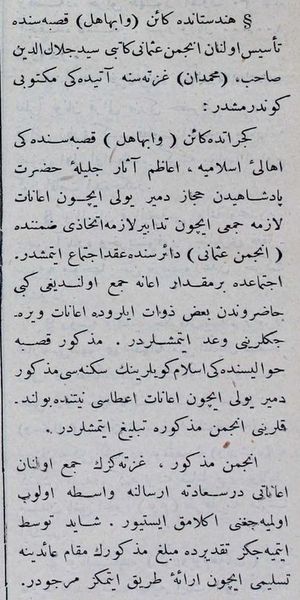 § هندستانده كائن (وابهاهل) قصبه‌سنده
تأسيس اولنان انجمن عثمانى كاتبى سيد جلال الدين
صاحب، (محمدان) غزته‌سنه آتيده‌كى مكتوبى
كوندرمشدر :
كجراتده كائن ( وابهاهل ) قصبه‌سنده‌كى
اهالئ اسلاميه ، اعاظم آثار جليلهٔ حضرت
پادشاهيدن حجاز دمير يولى ايچون اعانات
لازمه جمعى ايچون تدابير لازمه اتخاذى ضمننده
( انجمن عثمانى ) دائره‌سنده عقد اجتماع ايتمشدر.
اجتماعده بر مقدار اعانه جمع اولنديغى كبى
حاضروندن بعض ذوات ايلروده اعانات ويره‌
جكلرينى وعد ايتمشلردر . مذكور قصبه
حواليسنده‌كى اسلام كويلرينك سكنه‌سى مذكور
دمير يولى ايچون اعانات اعطاسى نيتنده بولند‌
قلرينى انجمن مذكوره تبليغ ايتمشلردر .
انجمن مذكور ، غزته‌كزك جمع اولنان
اعاناتى درسعادته ارسالنه واسطه اولوپ
اوليه‌جغنى اكلامق ايستيور . شايد توسط
ايتميه‌جكز تقديرده مبلغ مذكورك مقام عائدينه
تسليمى ايچون ارائهٔ طريق ايتمكز مرجودر.